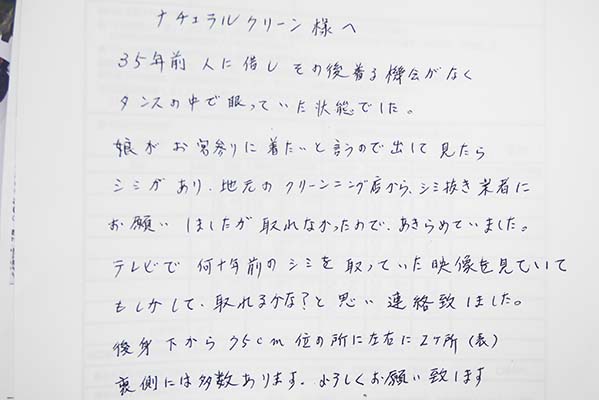 ナチュラルクリーン様へ
35年前 人に借し その後着る機会がなく
タンスの中で眠っていた状態でした。
娘がお宮参りに着たいと言うので出して見たら
シミがあり、地元のクリーンニング店から、シミ抜き業者に
お願いしましたが取れなかったので、あきらめていました。
テレビで何十年前のシミを取っていた映像を見ていて
もしかして、取れるかな?と思い連絡致しました。
後身下から35cm位の所に左右に2ヶ所(表)
裏側には多数あります。よろしくお願い致します